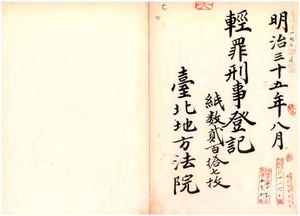 明治三十五年八月
輕罪刑事登記
紙数貳百拾七枚
臺北地方法院